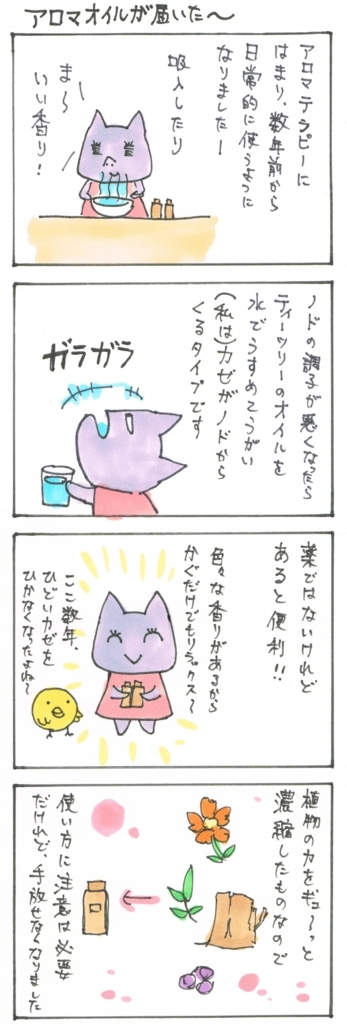 アロマオイルが届いた〜
アロマテラピーに
はまり、数年前から
日常的に使うように
なりましたー
吸入したり
ま〜
いい香り!
ノドの調子が悪くなったら
ティーツリーのオイルを
水でうすめてうがい
(私は)カゼがノドから
くるタイプです
ガラガラ
薬ではないけれど
あると便利!!
色々な香りがあるから
かぐだけでもリラックス〜
ここ数年、
ひどいカゼを
ひかなくなったよね〜
植物の力をギュ〜っと
濃縮したものなので
使い方に注意は必要
だけれど、手放せなくなりました